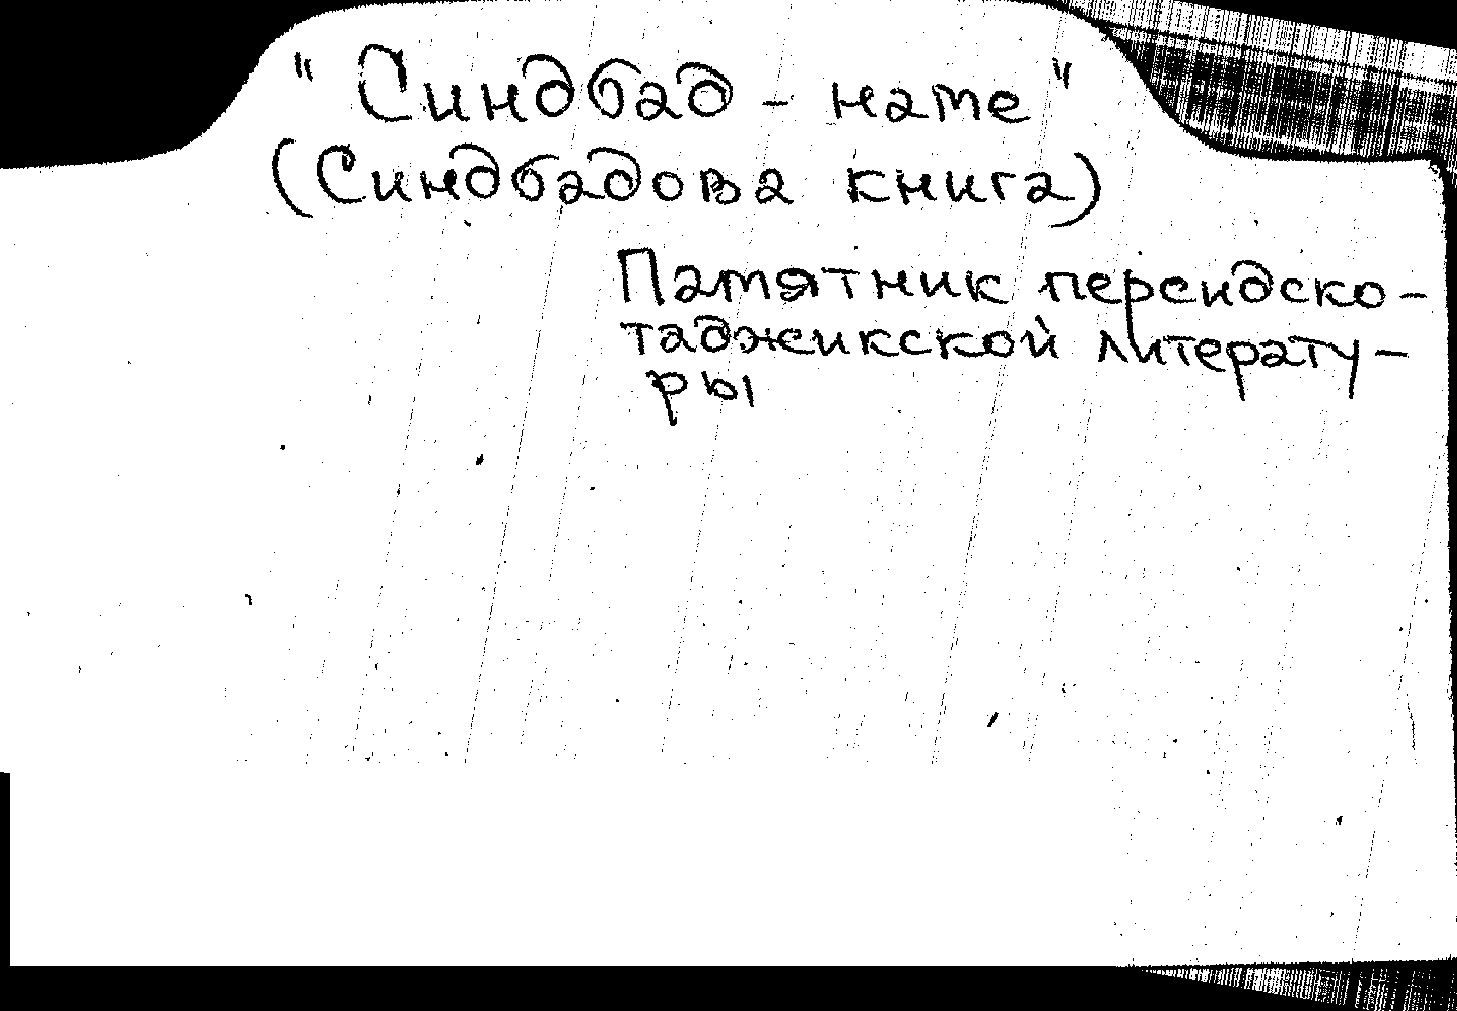 "Синдбад - наme"
(Синдбадова книга)
Памятник персидско-
таджикской литерату-
ры